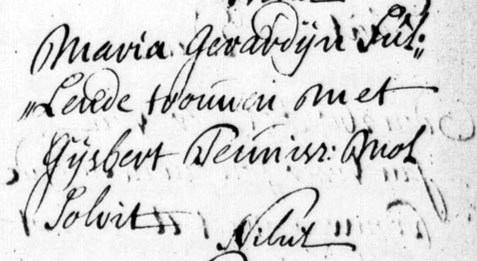 Maria Gerardijn Sul„
„lende trouwen met
Gijsbert Teunisz: Mol
Solvit Nihil